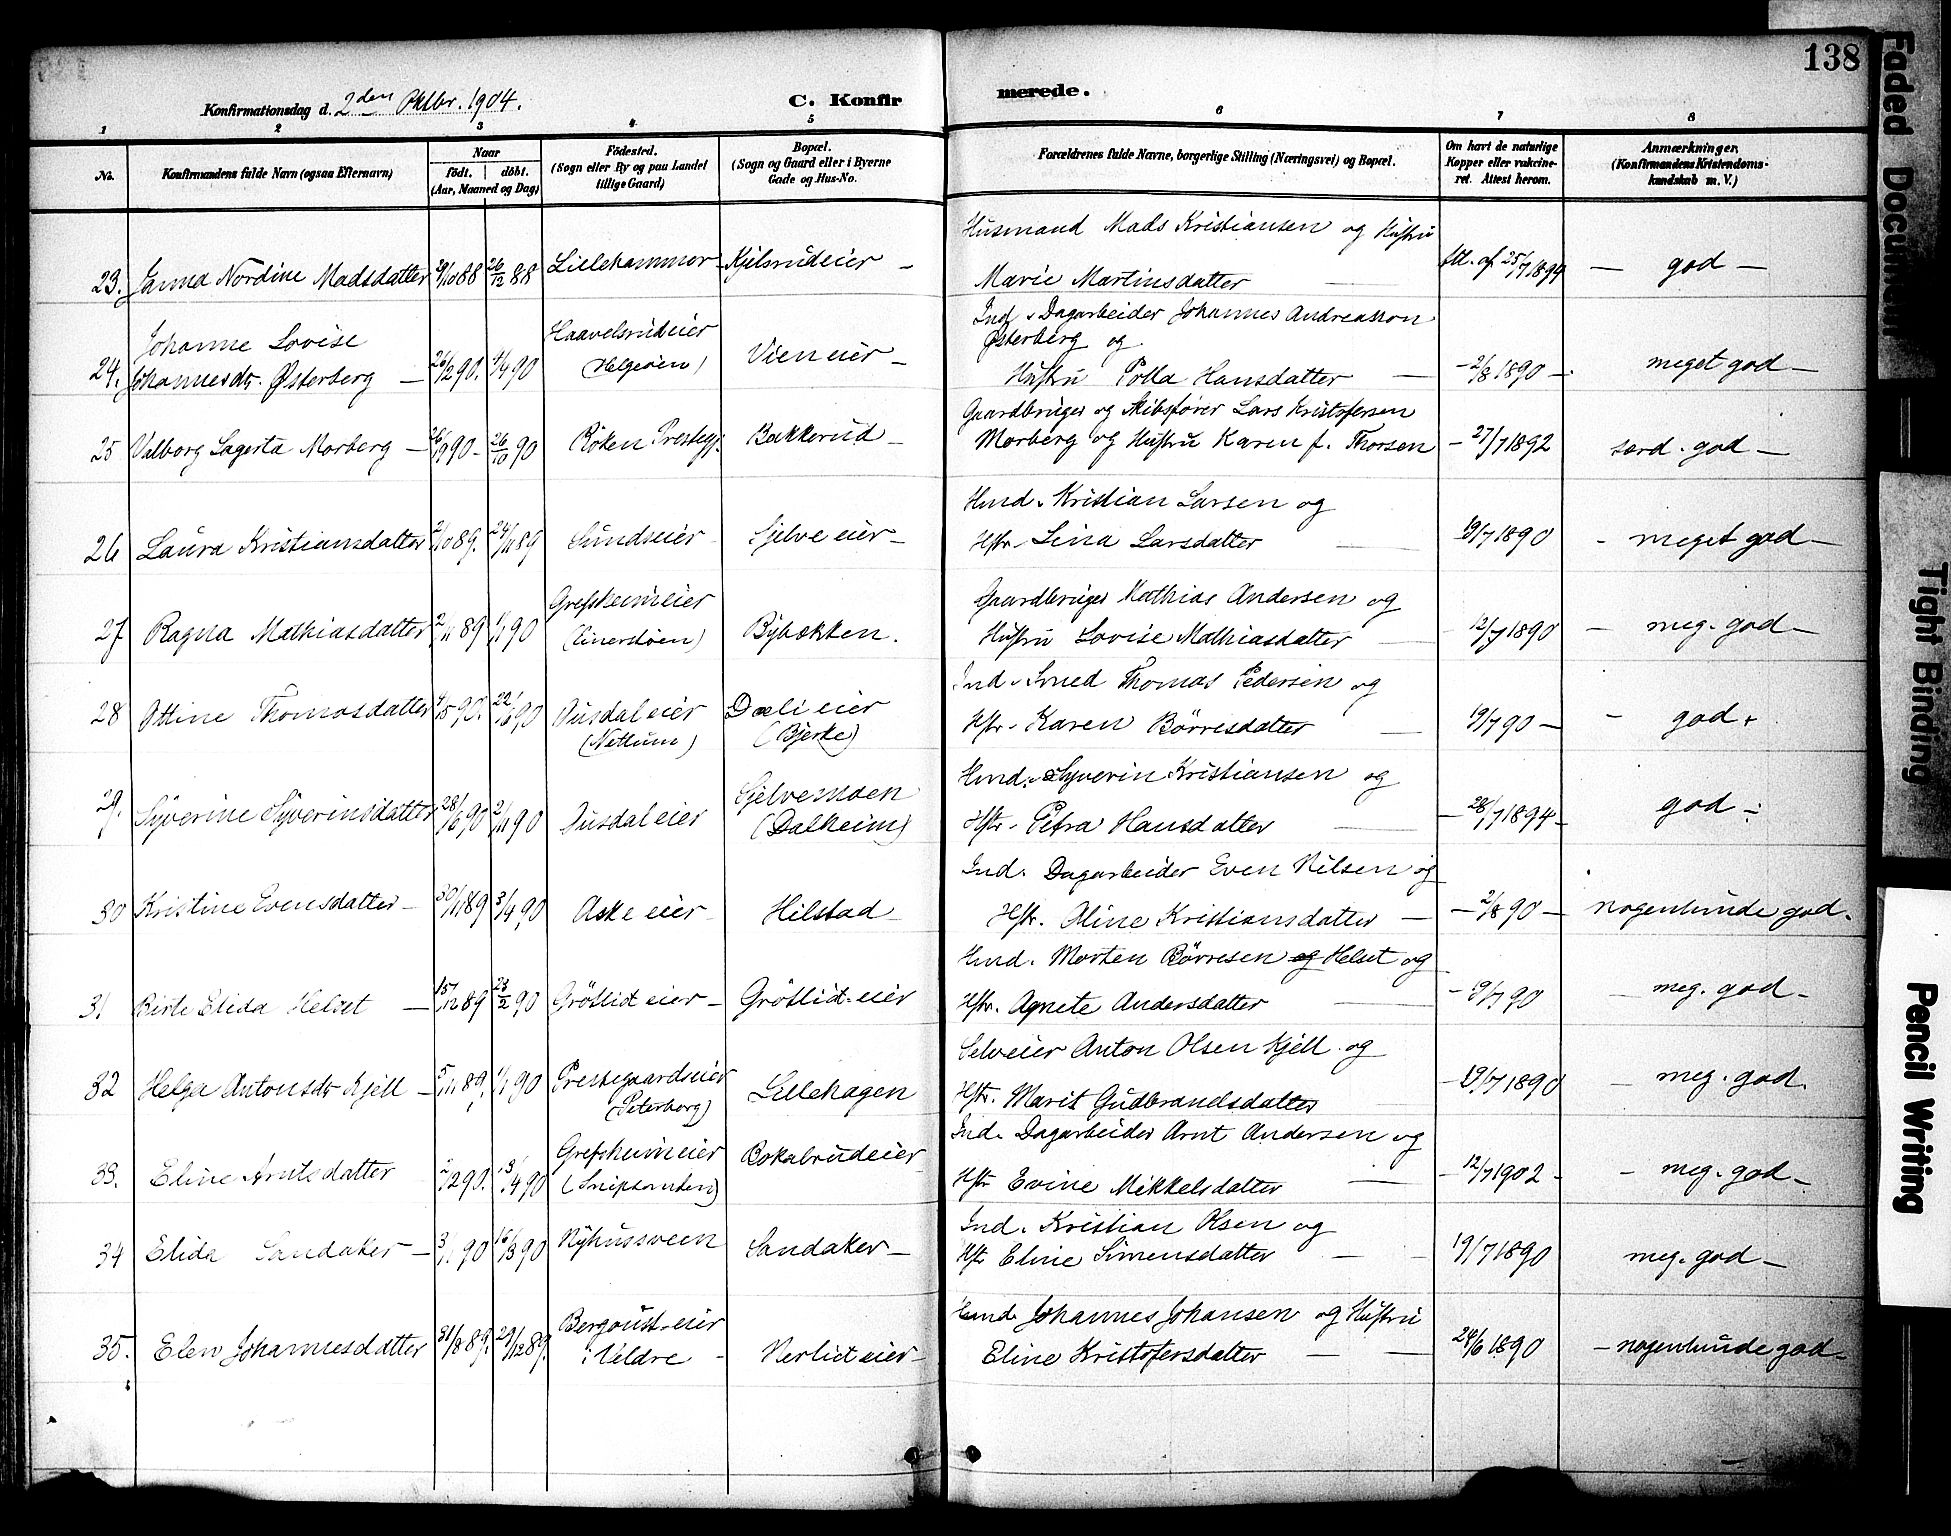 138
Konfirmationsdag d. 2den Oktbr. 1904.
C. Konfirmerede.
1 2 3 4 5 6 7 8
No.
Konfirmandens fulde Navn (ogsaa Efternavn)
Naar
født. døbt.
(Aar, Maaned og Dag)
Fødested.
(Sogn eller By og paa Landet
tillige Gaard)
Bopæl.
(Sogn og Gaard eller i Byerne
Gade og Hus-No.
Forældrenes fulde Navne, borgerlige Stilling (Næringsvei) og Bopæl.
Om havt de naturlige
Kopper eller vakcine-
ret. Attest herom.
Anmærkninger.
(Konfirmandens Kristendoms-
kundskab m. V.)
Husmand Mads Kristiansen og Hustru
23. Janna Nordine Madsdatter 29/10 88 26/12 88 Lillehammer Kjelsrudeier Marie Martinsdatter att. af 25/7 1894 god
Ind. Dagarbeider Johannes Andreassen
Johanne Lovise Haavelsrudeier Østerberg og
24. Johannesdr. Østerberg 26/2 90. 4/4 90 (Helgøen) Vien eier Hustru Polla Hansdatter 2/8 1890 meget god
Gaardbruger og Skibsfører Lars Kristofersen
25 Valborg Lagerta Morberg 26/9 90 26/10 90 Röken Prestegj. Bakkerud Morberg og Hustru Karen f. Thorsen 27/7 1892 særd. god
Hmd. Kristian Larsen og
26 Laura Kristiansdatter 2/10 89. 24/11 89 Sundseier Sjelve eier Hstr. Lina Larsdatter 19/7 1890 meget god
Grefsheimeier Gaardbruger Mathias Andersen og
27 Ragna Mathiasdatter 2/11 89 1/1 90 Bybækken. Hustru Lovise Mathiasdatter 12/7 1890 meg. god
Ind. Smed Thomas Pedersen og
28 Ottine Thomasdatter 4/5 90. 22/6 90 Ausdal eier Dæli eier Hstr. Karen Börresdatter 19/7 90 god
(Nettum) (Bjerke)
Hmd. Syverin Kristiansen og
29. Syverine Syverinsdatter 28/6 90 2/11 90 Ausdal eier Sjelvemoen Hstr. Petra Hansdatter 28/7 1894 god
(Dalheim)
Ind. Dagarbeider Even Nilsen og
30 Kristine Evensdatter 30/11 89 3/4 90 Aske eier Hilstad Hstr. Aline Kristiansdatter 2/8 90 nogenlunde god.
Hmd. Morten Börresen og Helset og
31 Birte Elida Helset 15/12 89 23/2 90 Gröslid eier Gröslid-eier Hstr. Agnete Andersdatter 19/7 90 meg. god
Selveier Anton Olsen Kjell og
32 Helga Antonsdr Kjell 5/11 89. 1/1 90 Prestegaardseier Lillehagen Hstr. Marit Gudbrandsdatter 19/7 1890 meg. god.
(Peterborg)
Ind. Dagarbeider Arnt Andersen og
33. Eline Arntsdatter 2/2 90. 13/4 90 Grefsheimeier Bokalrudeier Hstr Evine Mikkelsdatter 12/7 1902 meg. god
Ind. Kristian Olsen og
34 Elida Sandaker 3/1 90 16/3 90 Nyhussveen Sandaker Hstr Eline Simensdatter 19/7 1890 meg. god
Hmd. Johannes Johansen og Hustru
35. Elen Johannesdatter 31/8 89. 29/12 89. Bergoust-eier Nerlid eier Eline Kristofersdatter 24/6 1890 nogenlunde god
i Veldre
Faded Document
Tight Binding
Pencil Writing